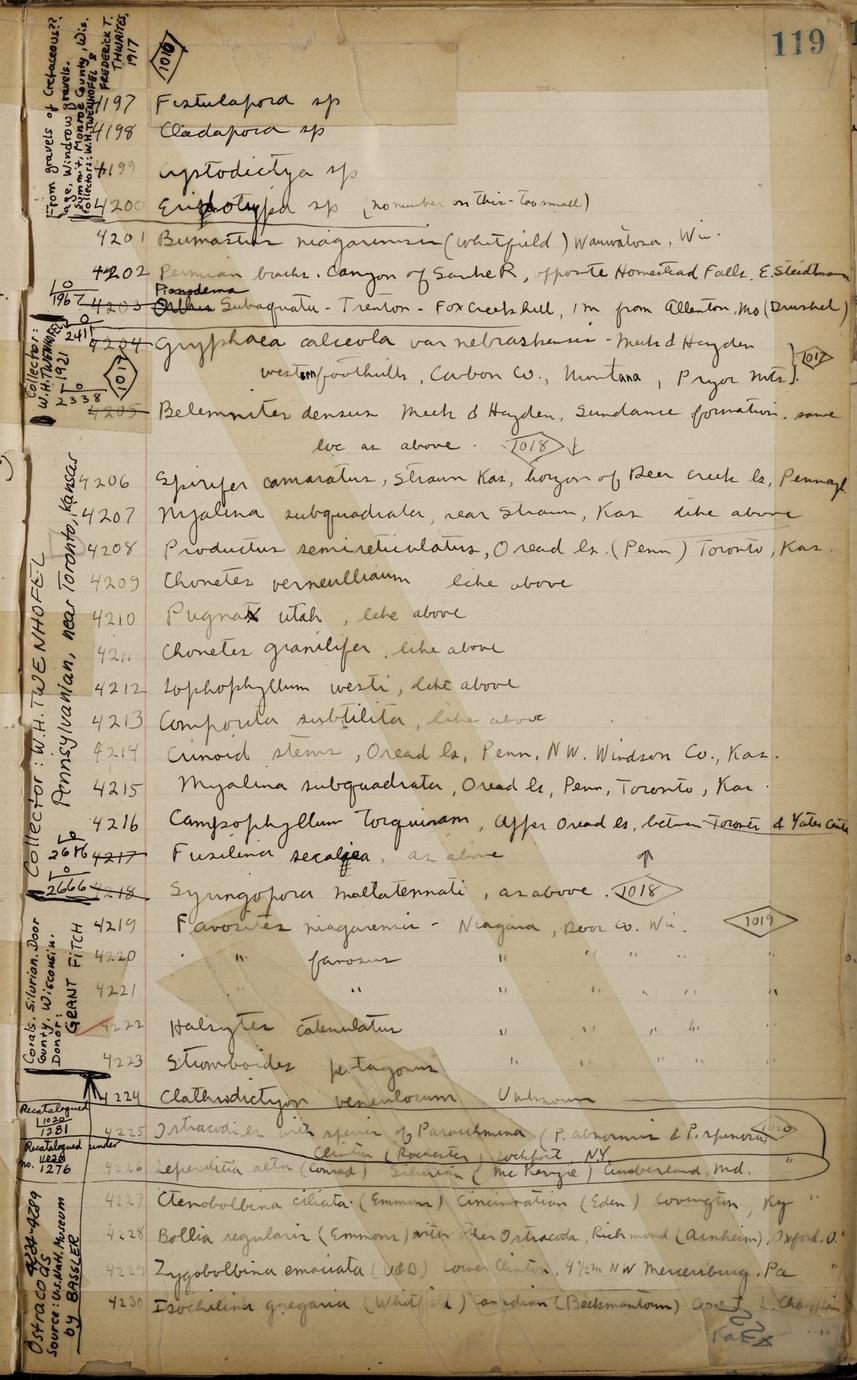 119
1016
From gravels of Cretaceous??
age. Windrow gravels.
Summit, Monroe County, Wis.
Collectors: W.H. TWENHOFEL &
FREDERICK T.
THWAITES,
1917
4197 Fistulapora sp
4198 Cladapora sp
4199 Cystodictya sp
4200 sp (no number on this - too small)
4201 Bumastus niagarensis (Whitfield) Wauwatosa, Wis.
4202 Permian brachs. Canyon of R, opposite Homestead Falls. E. Steidtmann
Plaesiomys
10
1967
4203 Orthis Subaquata - Trenton - Fox Creek hill, 1 m from Allenton, Mo (Drushel)
10
2411
4204 Gryphaea calceola var nebraskensis - Meek & Hayden
western foothills, Carbon Co., Montana, Pryor Mts). 1017
Collector:
W.H. TWENHOFEL
1921
1017
10
2338
4205 Belemnites densus Meek & Hayden, Sundance formation, same
loc as above. 1018 ↓
4206 Spirifer camaratus, Strawn Kas, horizon of Deer creek ls, Pennsyl
4207 Myalina subquadrata, near Strawn, Kas like above
4208 Productus semireticulatus, Oread ls. (Penn) Toronto, Kas.
4209 Chonetes verneuilianum like above
4210 Pugnax utah, like above
4211 Chonetes granilifer, like above
4212 Lophophyllum westi, like above
4213 Composita subtilita, like above
4214 Crinoid stems, Oread ls, Penn, N.W. Windson Co., Kas.
4215 Myalina subquadrata, Oread ls, Penn, Toronto, Kas.
4216 Campophyllum torquium, Upper Oread ls, between Toronto & Yates Center
10
2676
4217 Fusilina secalica, as above
10
2666
4218 Syringopora multattenuata, as above. ↑ 1018
Collector: W.H. TWENHOFEL
Pennsylvanian, near Toronto, Kansas
4219 Favosites niagarensis - Niagara, Door Co. Wis. 1019
4220 " favosus " " " "
4221 " " " " " "
4222 Halysites catenulatus " " " "
4223 Stromboides pentagonus " " " "
4224 Clathrodictyon vesiculosum Unknown
Corals. Silurian. Door
County, Wisconsin.
Donor:
GRANT FITCH
Recatalogued
1020
1281
4225 Ostracodes with spines of Paraechmina (P. abnormis & P. spinosa) 1020
Clinton (Rochester) Lockport N.Y.
Recatalogued under
no. 1020
1276
4226 Leperditia alta (Conrad) Silurian (McKenzie) Cumberland, Md. "
4227 Ctenobolbina ciliata (Emmons) Cincinnatian (Eden) Covington, Ky "
4228 Bollia regularis (Emmons) with other Ostracoda, Richmond (Arnheim), Oxford, O. "
4229 Zygobolbina emaciata (U&B) Lower Clinton, 4½ m NW Mercersburg, Pa "
4230 Isochilina gregaria (Whitfield) Canadian (Beekmantown) L. Champlain
Ostracodas 4224-4289
Source: US. Nat. Museum
by BASSLER